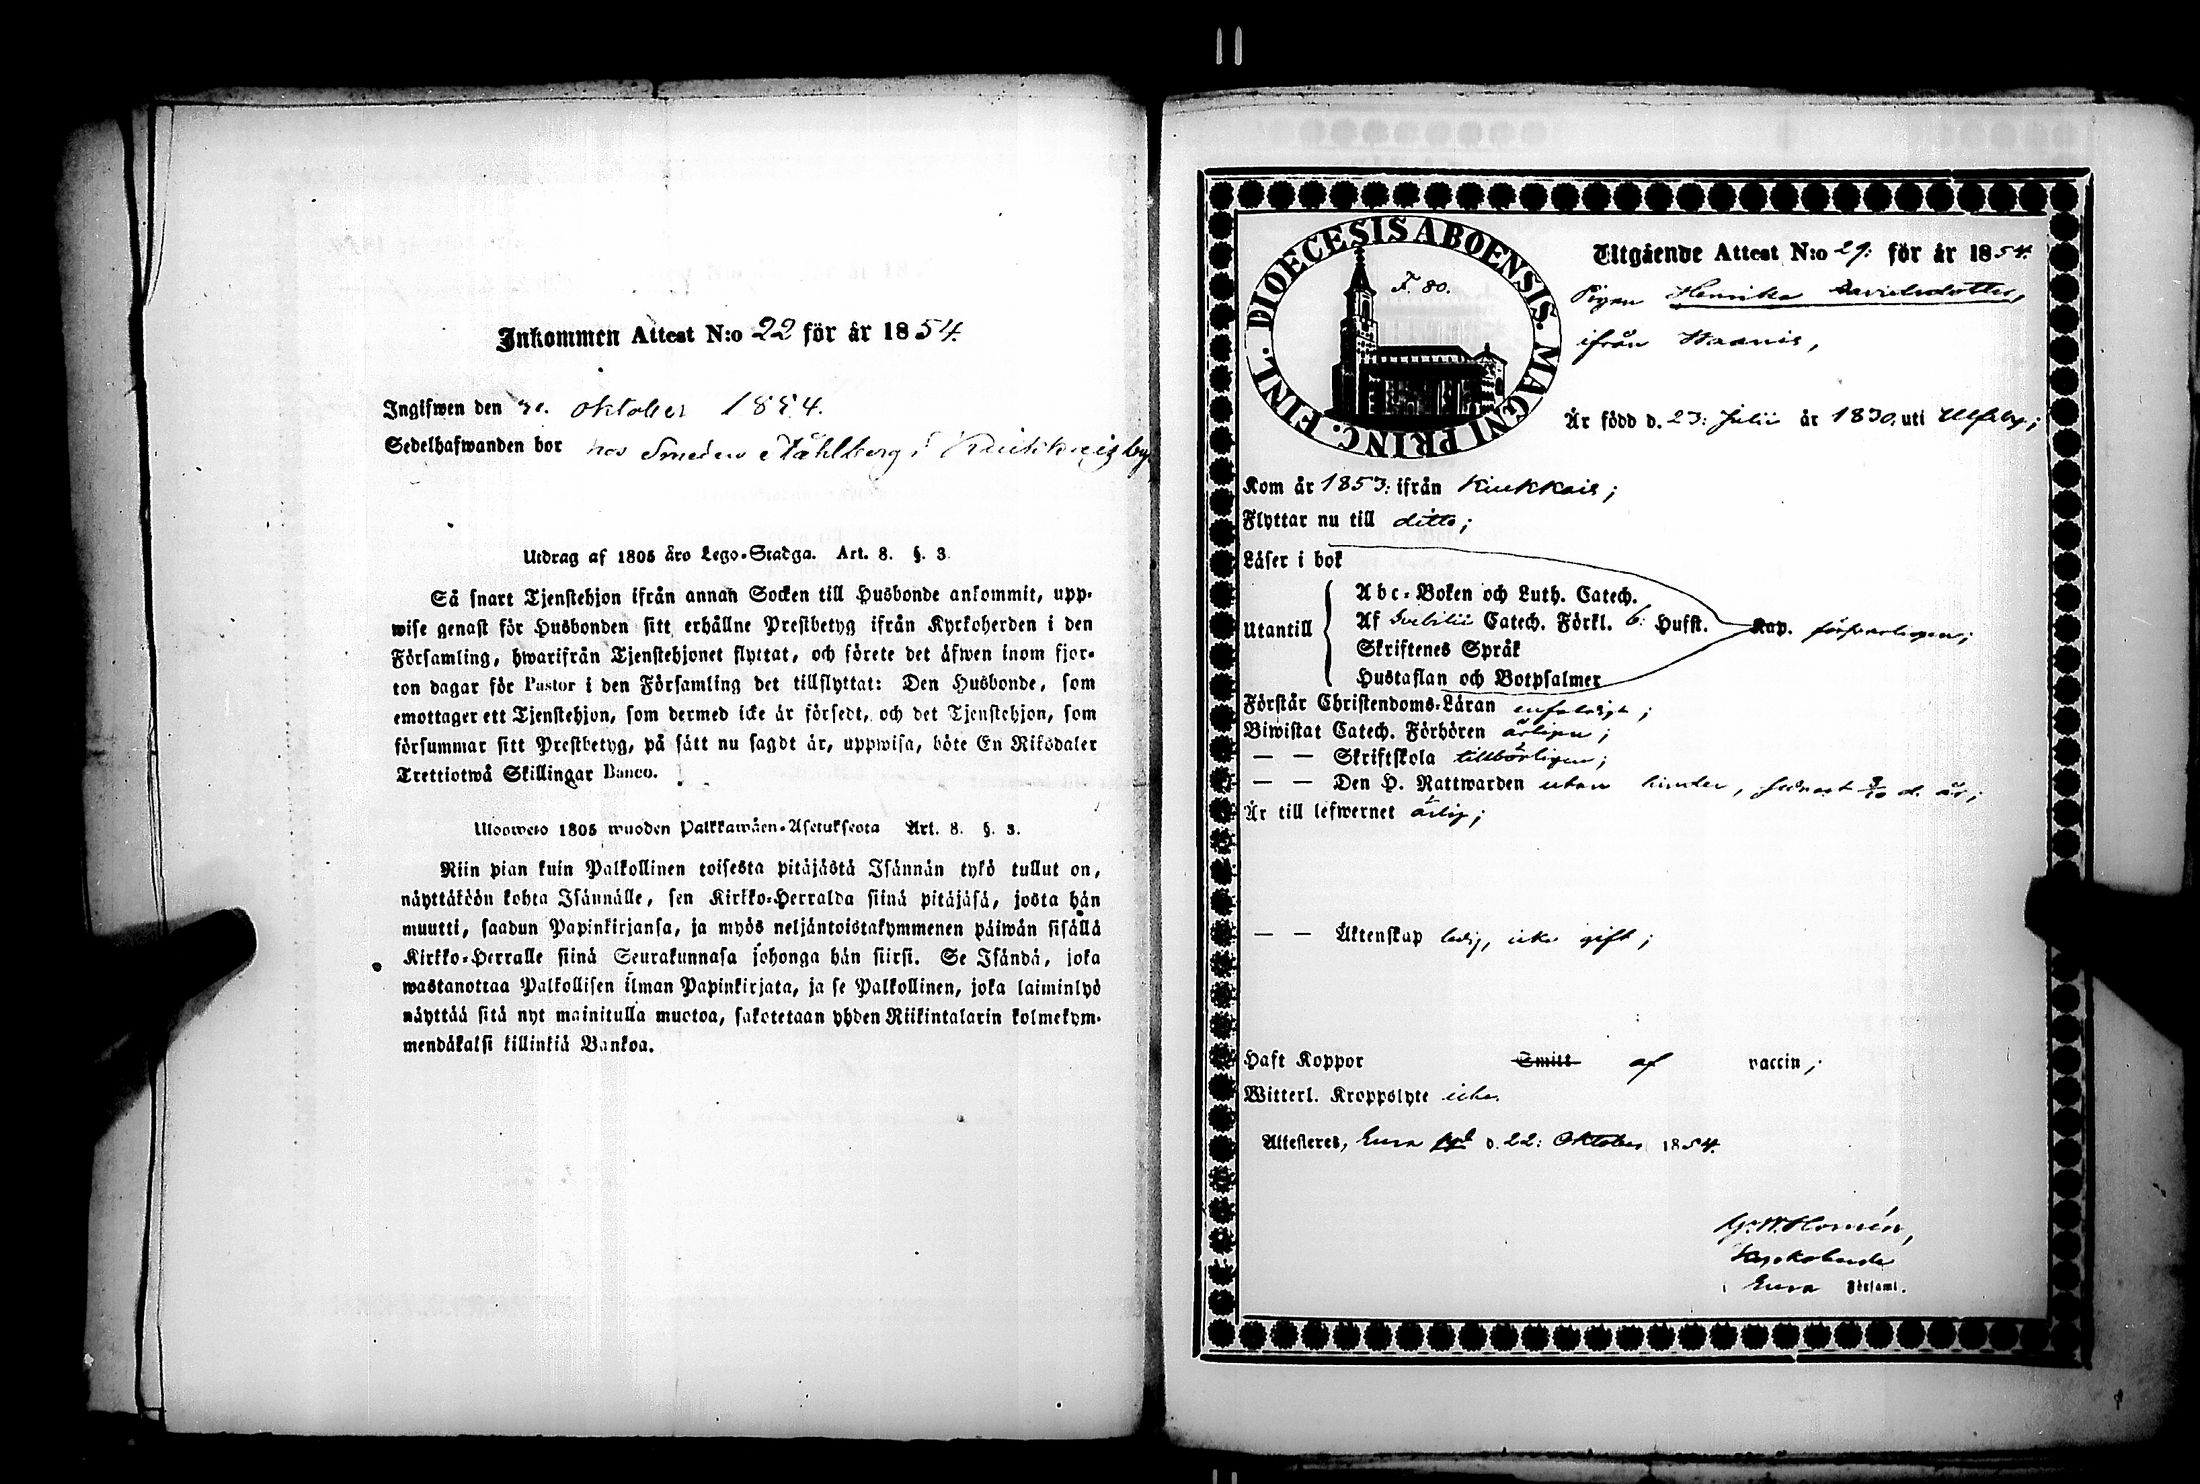 Inkommen Attest N:o 22 för år 1854.
Ingifwen den 31. oktober 1854.
Sedelhafwanden bor hos Smeden Ståhlberg i Kiukkais by
Utdrag af 1805 åro Lego-Stadga. Art. 8. §. 3.
Så snart Tjenstehjon ifrån annan Socken till Husbonde ankommit, upp-
wise genast för Husbonden sitt erhållne Prestbetyg ifrån Kyrkoherden i den
Församling, hwarifrån Tjenstehjonet flyttat, och förete det äfwen inom fjor-
ton dagar för Pastor i den Församling det tillflyttat: Den Husbonde, som
emottager ett Tjenstehjon, som dermed icke är försedt, och det Tjenstehjon, som
försummar sitt Prestbetyg, på sätt nu sagdt är, uppwisa, böte En Riksdaler
Trettiotwå Skillingar Banco.
Ulosweto 1805 wuoden Palkkawäen-Asetuksesta Art. 8. §. 3.
Niin pian kuin Palkollinen toisesta pitäjästä Isännän tykö tullut on,
näyttäköön kohta Isännälle, sen Kirkko-Herralda siinä pitäjäsä, josta hän
muutti, saadun Papinkirjansa, ja myös neljäntoistakymmenen päiwän sisällä
Kirkko-Herralle siinä Seurakunnasa johonga hän siirsi. Se Isändä, joka
wastanottaa Palkollisen ilman Papinkirjata, ja se Palkollinen, joka laiminlyö
näyttää sitä nyt mainitulla muotoa, sakotetaan yhden Riikintalarin kolmekym-
mendäkaksi killinkiä Bankoa.
DIOECESIS ABOENSIS. MAGNI PRINC. FINL.
F. 80.
Utgående Attest N:o 29: för år 1854.
Pigan Henrika Davidsdotter,
ifrån Naanis,
Är född d. 23: Julii år 1830. uti Ulfsby;
Kom år 1853: ifrån Kiukkais;
Flyttar nu till ditto;
Läser i bok
Utantill
Abc-Boken och Luth. Catech.
Af Svebilii Catech. Förkl. 6: Hufst. Kap. försvarligen;
Skriftenes Språk
Hustaflan och Botpsalmer
Förstår Christendoms-Läran enfaldigt;
Biwistat Catech. Förhören årligen;
— — Skriftskola tillbörligen;
— — Den H. Nattwarden utan hinder, sednast d. år;
Är till lefwernet ärlig;
— — Äktenskap ledig, icke gift;
Haft Koppor Smitt af vaccin;
Witterl. Kroppslyte icke.
Attesteres, Eura d. 22: Oktober 1854.
G. W. Homén,
Kyrkoherde
Eura Församl.